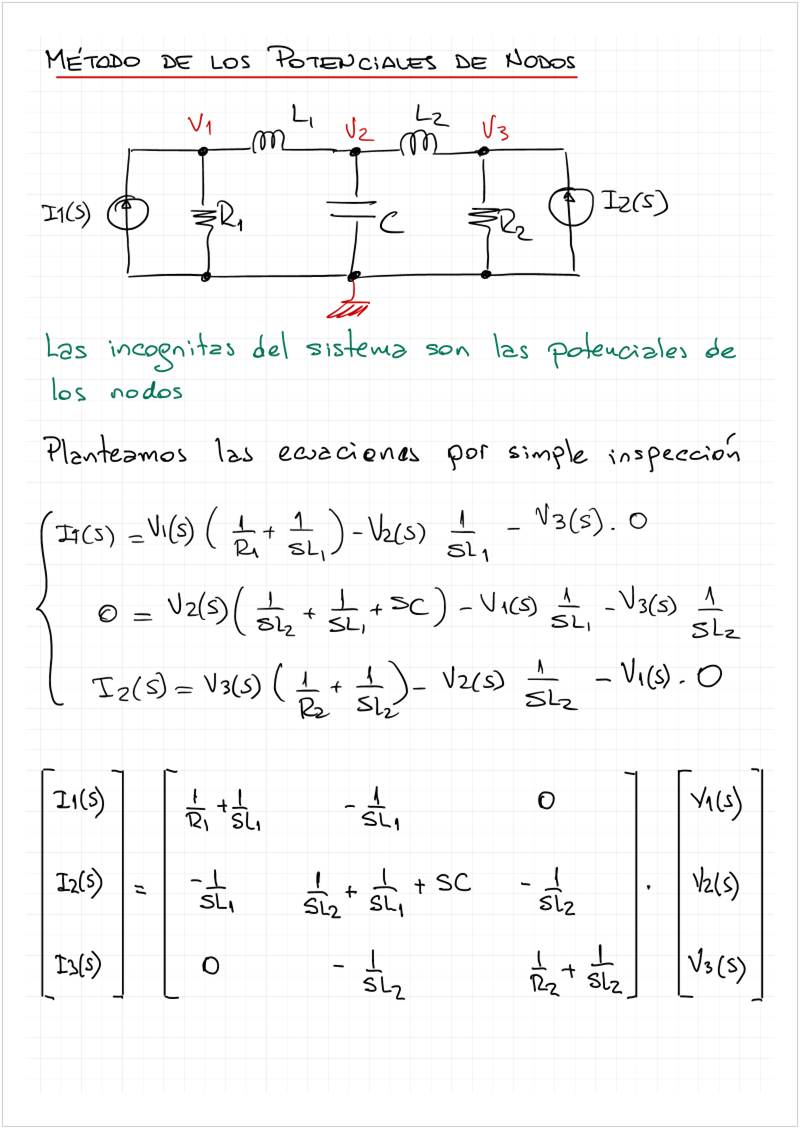 MÉTODO DE LOS POTENCIALES DE NODOS
V1 L1 V2 L2 V3
I1(S) R1 C R2 I2(S)
Las incognitas del sistema son las potenciales de
los nodos
Planteamos las ecuaciones por simple inspección
I1(S) = V1(S) ( 1/R1 + 1/SL1 ) - V2(S) 1/SL1 - V3(S) . 0
0 = V2(S) ( 1/SL2 + 1/SL1 + SC ) - V1(S) 1/SL1 - V3(S) 1/SL2
I2(S) = V3(S) ( 1/R2 + 1/SL2 ) - V2(S) 1/SL2 - V1(S) . 0
[I1(S)] [1/R1 + 1/SL1 -1/SL1 0] [V1(S)]
[I2(S)] = [-1/SL1 1/SL2 + 1/SL1 + SC -1/SL2] . [V2(S)]
[I3(S)] [0 -1/SL2 1/R2 + 1/SL2] [V3(S)]